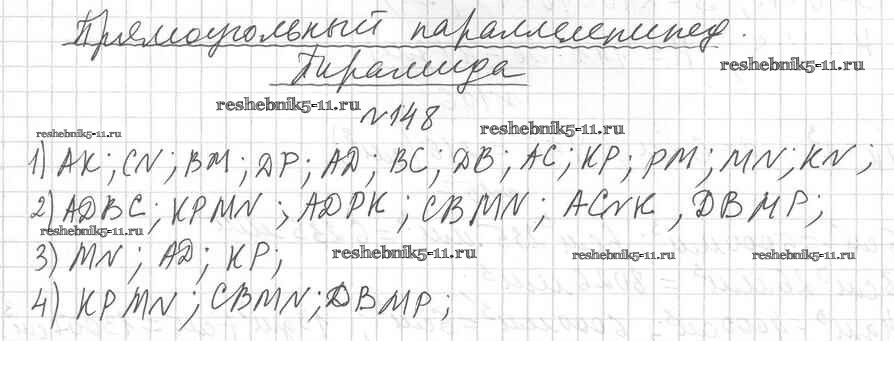 Прямоугольный параллелепипед.
reshebnik5-11.ru
Пирамида
reshebnik5-11.ru
№148
reshebnik5-11.ru
reshebnik5-11.ru
1) AK; CN; BM; DP; AD; BC; DB; AC; KP; PM; MN; KN;
2) ADBC; KPMN; ADPK; CBMN; ACNK, DBMP;
reshebnik5-11.ru
3) MN; AD; KP;
reshebnik5-11.ru
reshebnik5-11.ru
reshebnik5-11.ru
4) KPMN; CBMN; DBMP;